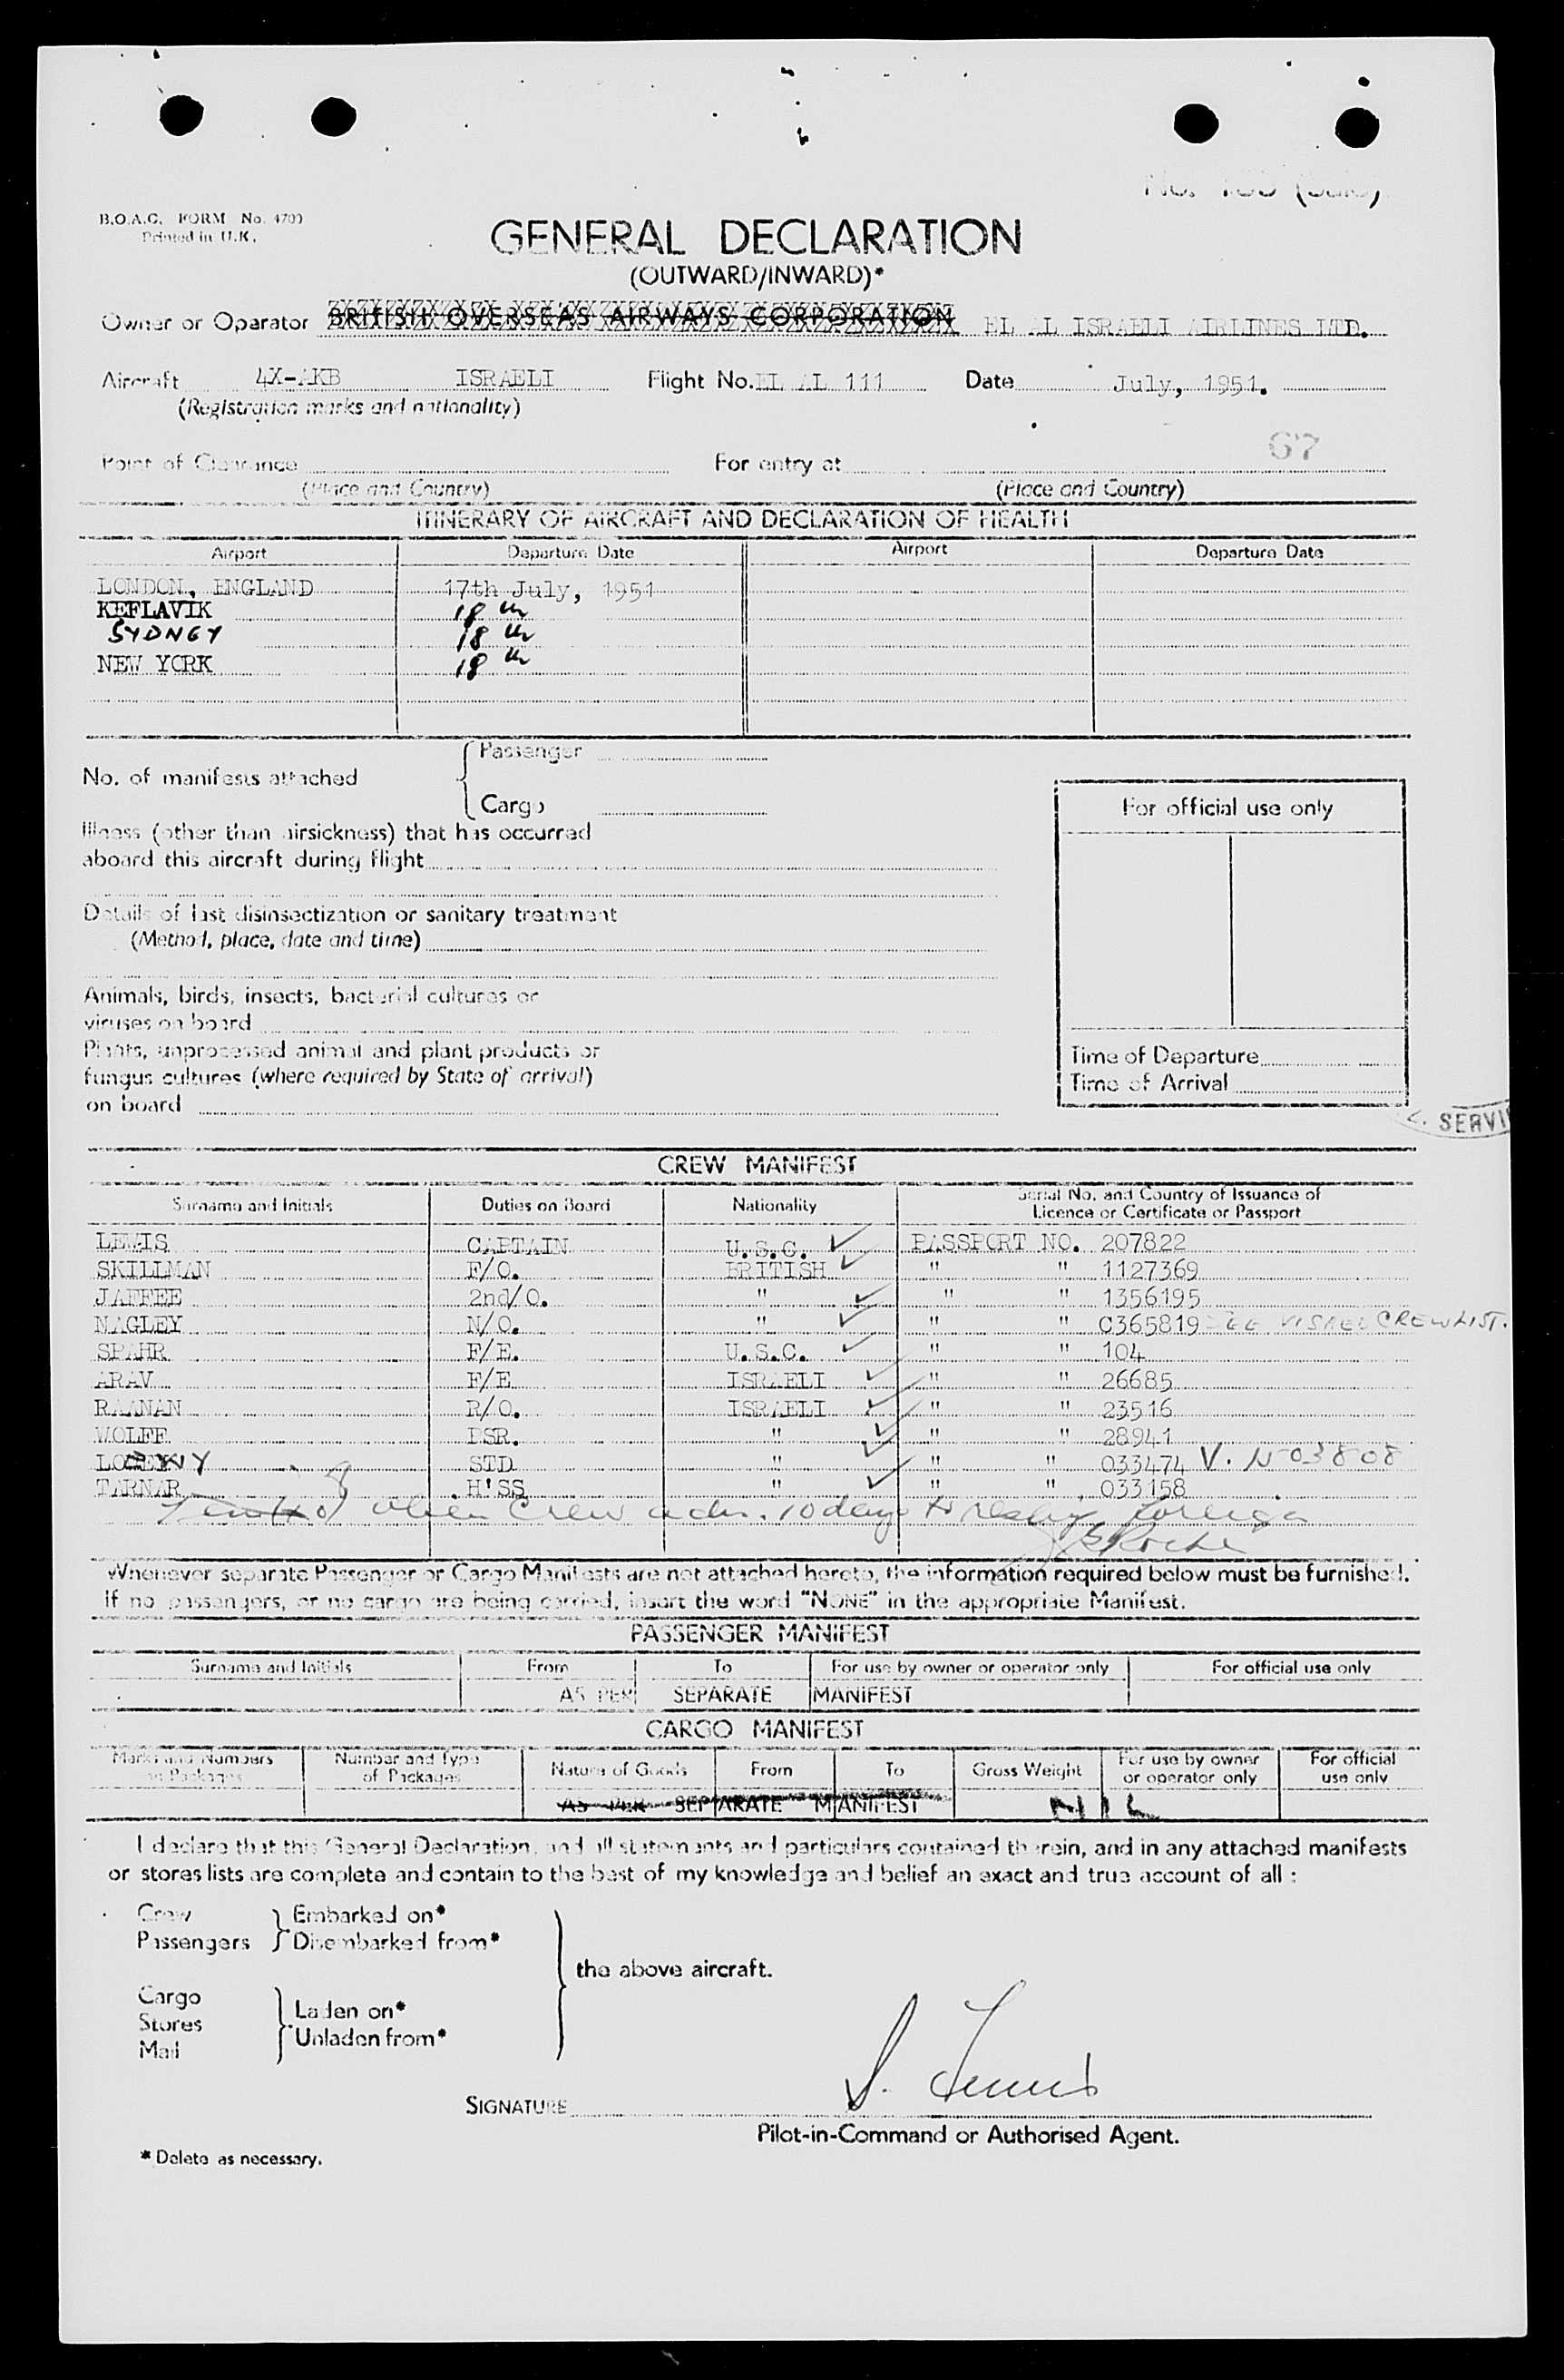 B.O.A.C. FORM No. 4700
Printed in U.K.
GENERAL DECLARATION
(OUTWARD/INWARD)*
Owner or Operator BRITISH OVERSEAS AIRWAYS CORPORATION EL AL ISRAELI AIRLINES LTD.
Aircraft 4X-AKB ISRAELI Flight No. EL AL 111 Date July, 1951.
(Registration marks and nationality)
67
Point of Clearance For entry at
(Place and Country) (Place and Country)
ITINERARY OF AIRCRAFT AND DECLARATION OF HEALTH
Airport Departure Date Airport Departure Date
LONDON, ENGLAND 17th July, 1951
KEFLAVIK 18 th
SYDNEY 18 th
NEW YORK 18 th
No. of manifests attached
Passenger
Cargo
For official use only
Illness (other than airsickness) that has occurred
aboard this aircraft during flight
Details of last disinsectization or sanitary treatment
(Method, place, date and time)
Animals, birds, insects, bacterial cultures or
viruses on board
Plants, unprocessed animal and plant products or
fungus cultures (where required by State of arrival)
on board
Time of Departure
Time of Arrival
CREW MANIFEST
Surname and Initials Duties on Board Nationality Serial No. and Country of Issuance of
Licence or Certificate or Passport
LEWIS CAPTAIN U.S.C. PASSPORT NO. 207822
SKILLMAN F/O. BRITISH " " 1127369
JAFFEE 2nd/O. " " " 1356195
NAGLEY N/O. " " " C365819 CREW LIST.
SPAHR F/E. U.S.C. " " 104
ARAV F/E ISRAELI " " 26685
RAANAN R/O. ISRAELI " " 23516
WOLFF PSR. " " " 28941
STD " " " 033474 V. N 03808
TARNAR H'SS " " " 033158
other crew adm. 10 days to reship foreign
Whenever separate Passenger or Cargo Manifests are not attached hereto, the information required below must be furnished.
If no passengers, or no cargo are being carried, insert the word "NONE" in the appropriate Manifest.
PASSENGER MANIFEST
Surname and Initials From To For use by owner or operator only For official use only
AS PER SEPARATE MANIFEST
CARGO MANIFEST
Marks and Numbers on Packages Number and Type of Packages Nature of Goods From To Gross Weight For use by owner or operator only For official use only
AS PER SEPARATE MANIFEST NIL
I declare that this General Declaration, and all statements and particulars contained therein, and in any attached manifests
or stores lists are complete and contain to the best of my knowledge and belief an exact and true account of all :
Crew
Passengers
Embarked on*
Disembarked from*
the above aircraft.
Cargo
Stores
Mail
Laden on*
Unladen from*
SIGNATURE S. Lewis
Pilot-in-Command or Authorised Agent.
* Delete as necessary.